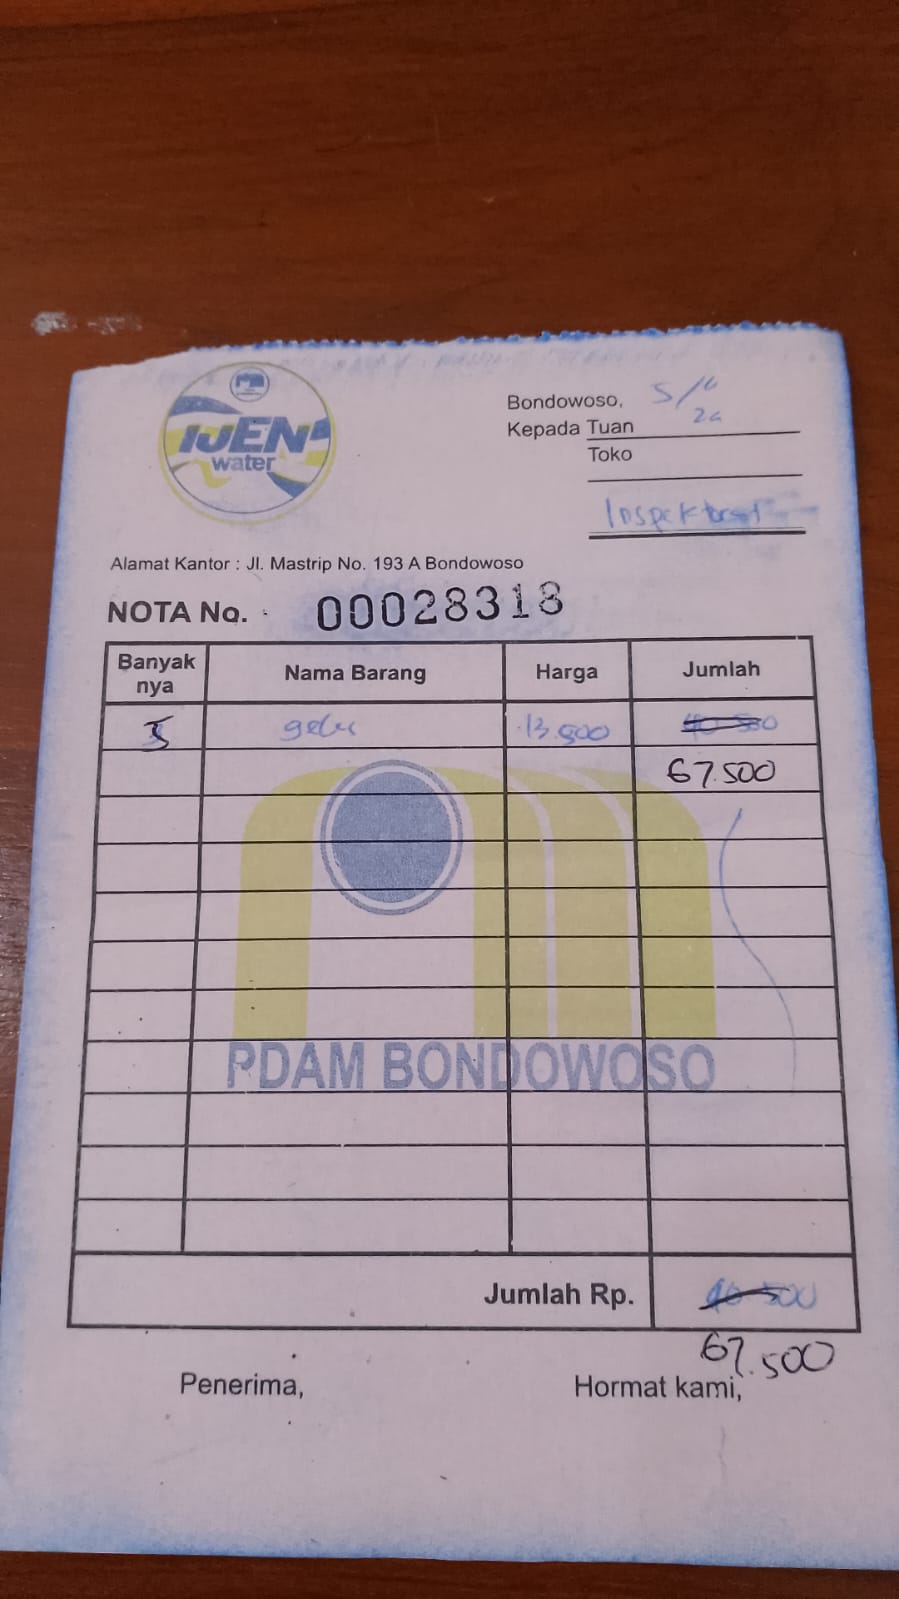 IJEN
water
Bondowoso, 5/6
24
Kepada Tuan
Toko
Inspektorat
Alamat Kantor : Jl. Mastrip No. 193 A Bondowoso
NOTA No. 00028318
Banyak nya Nama Barang Harga Jumlah
5 13.500 40.500
67.500
PDAM BONDOWOSO
Jumlah Rp. 40.500
67.500
Penerima, Hormat kami,